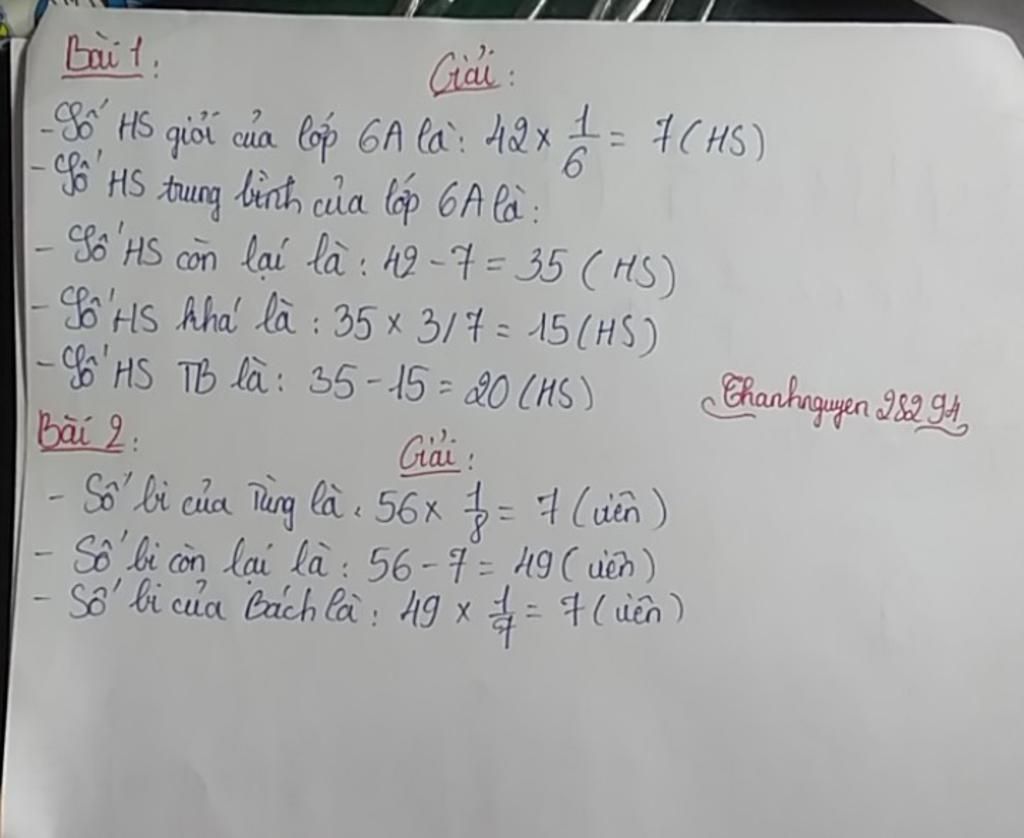 Bài 1:
Giải:
- Số HS giỏi của lớp 6A là: 42 × 1/6 = 7 (HS)
- Số HS trung bình của lớp 6A là:
- Số HS còn lại là: 42 - 7 = 35 (HS)
- Số HS khá là: 35 × 3/7 = 15 (HS)
- Số HS TB là: 35 - 15 = 20 (HS)
Thanhnguyen 28294
Bài 2:
Giải:
- Số bi của Tùng là: 56 × 1/8 = 7 (viên)
- Số bi còn lại là: 56 - 7 = 49 (viên)
- Số bi của Bách là: 49 × 1/7 = 7 (viên)